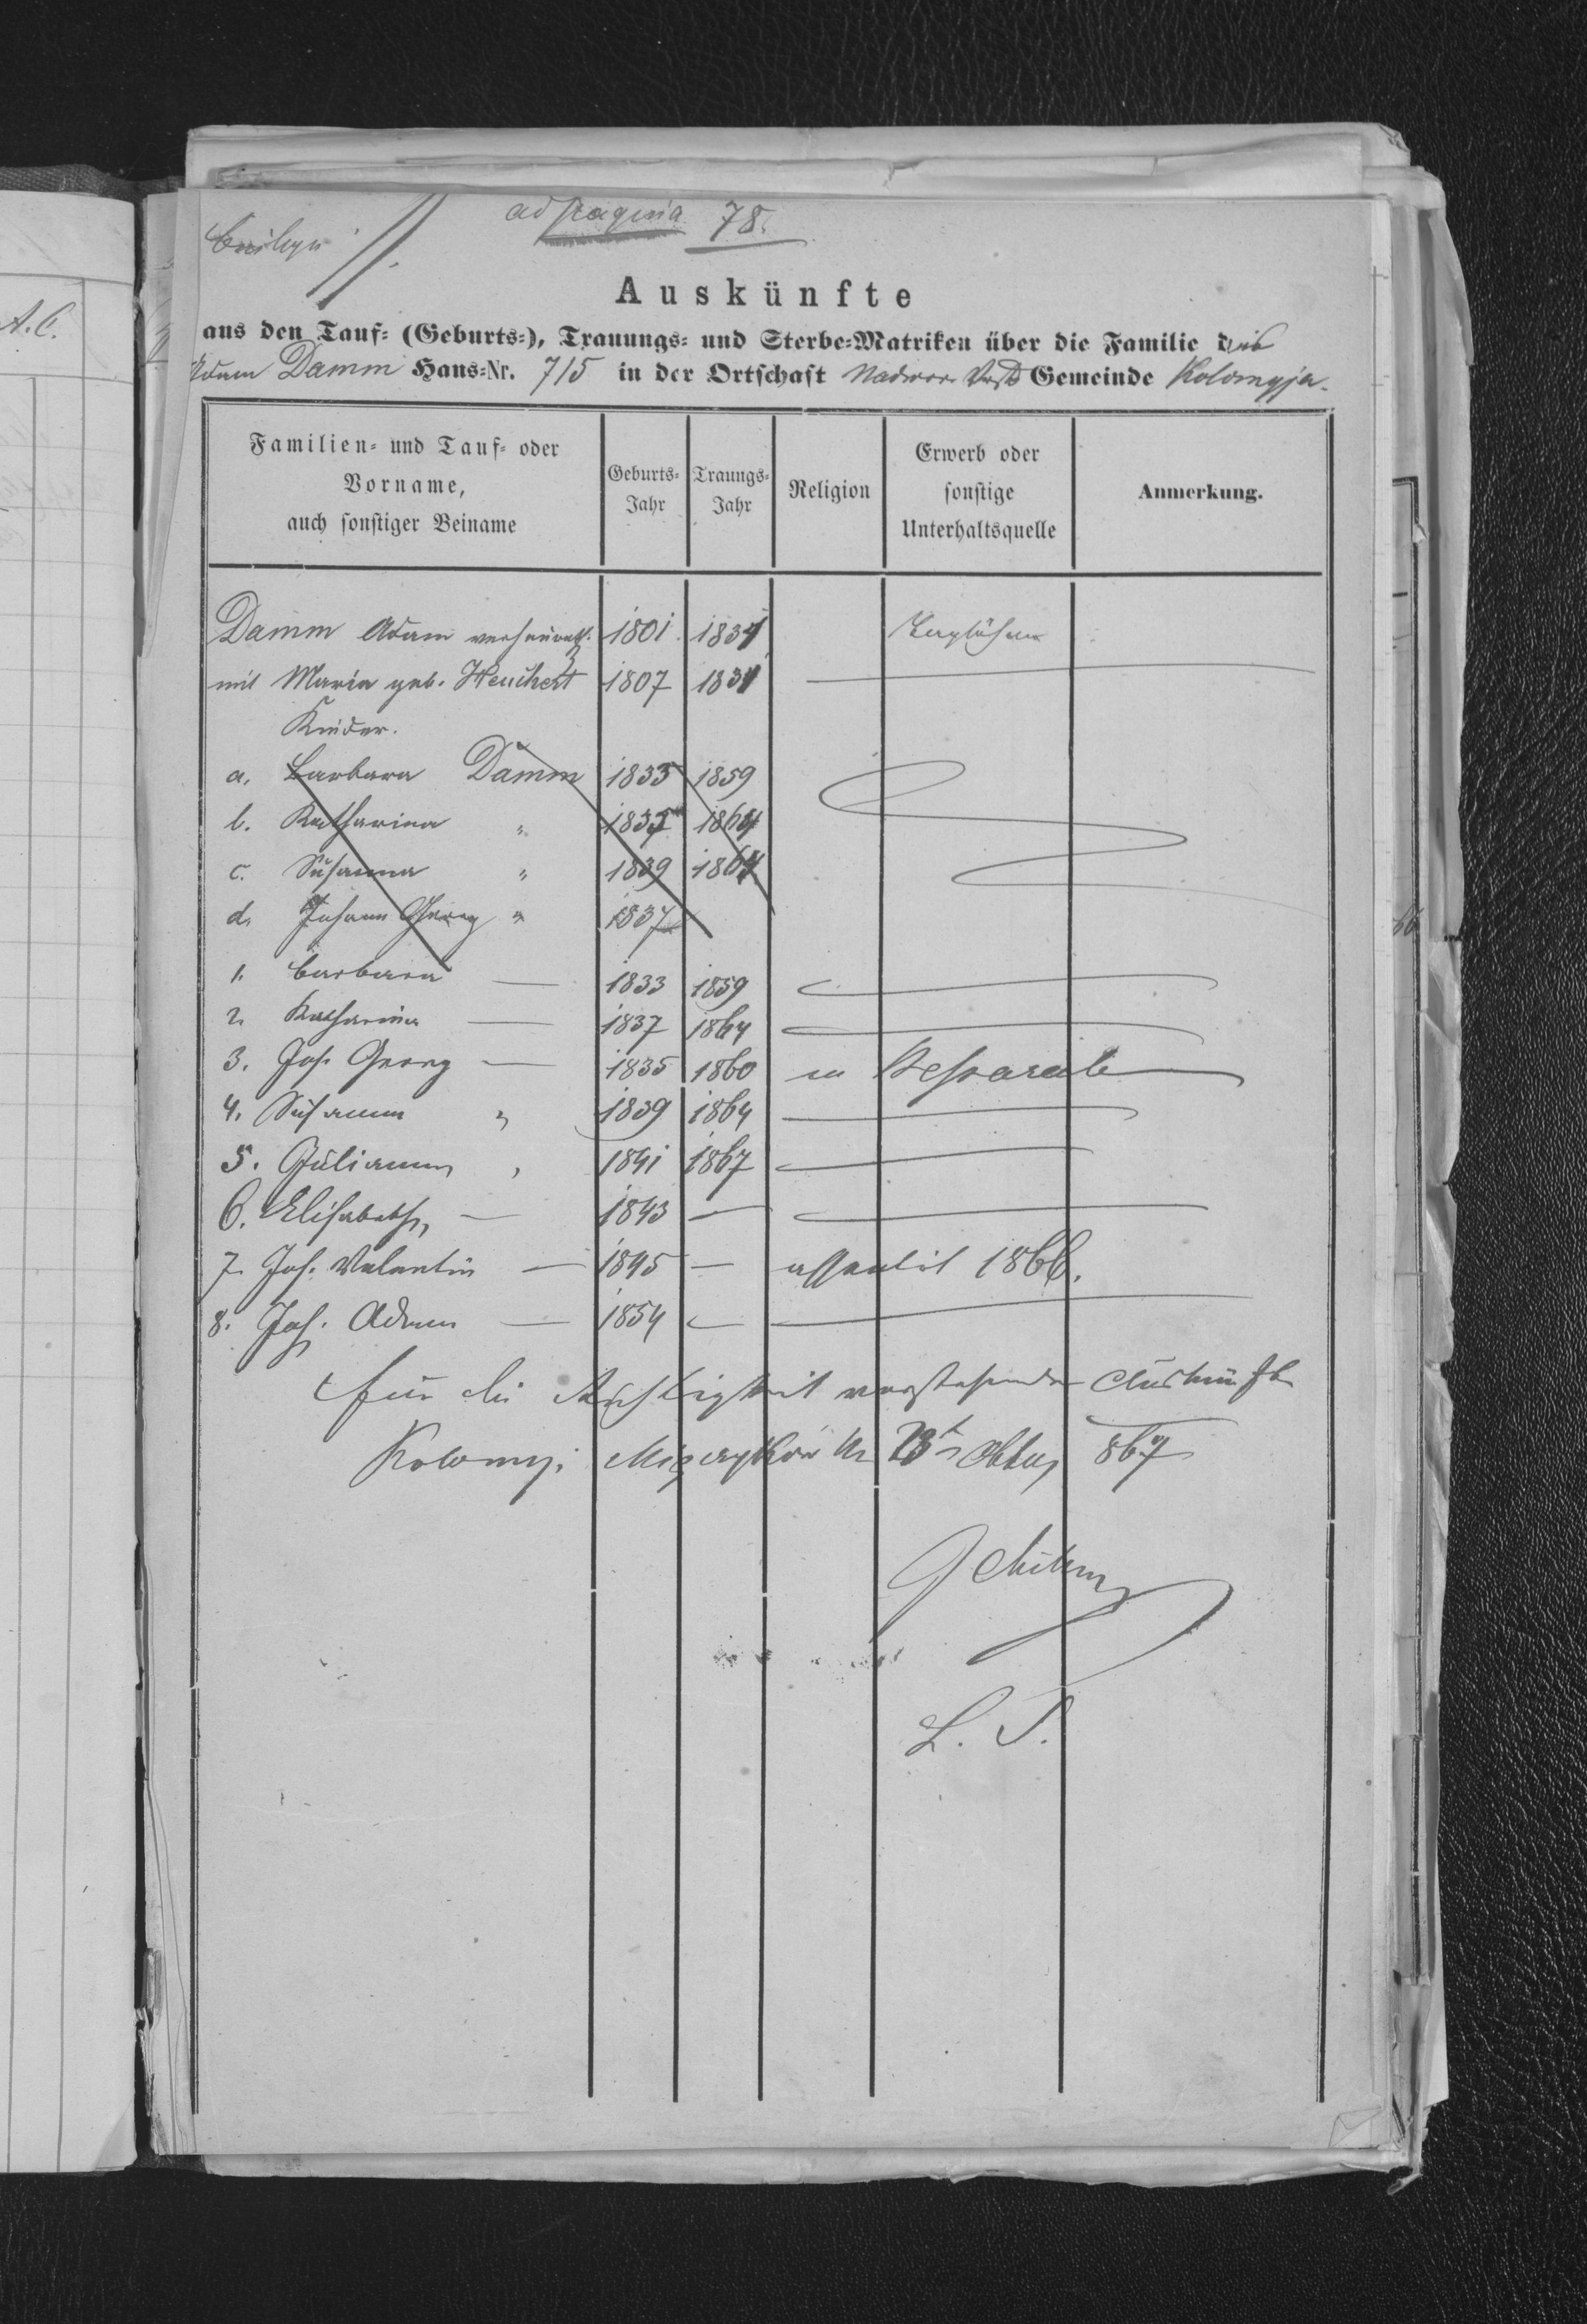 ad pagina 78.
Beilage
Auskünfte
aus den Tauf- (Geburts-), Trauungs- und Sterbe-Matriken über die Familie des
Adam Damm Haus-Nr. 715 in der Ortschaft Gemeinde Kolomyja.
Familien- und Tauf- oder Vorname, auch sonstiger Beiname
Geburts-Jahr
Trauungs-Jahr
Religion
Erwerb oder sonstige Unterhaltsquelle
Anmerkung.
Damm Adam verheurath. 1801. 1831 Taglöhner
mit Maria geb. Heuchert 1807 1831
Kinder.
a. Barbara Damm 1833 1859
b. Katharina " 1835 1864
c. Susanna " 1839 1864
d. Johann Georg " 1837
1. Barbara — 1833 1859
2. Katharina — 1837 1864
3. Joh. Georg — 1835 1860 in Bessarab
4. Susanna " 1839 1864
5. Julianna " 1841 1867
6. Elisabeth — 1843 —
7. Joh. Valentin — 1845 — assentirt 1866.
8. Joh. Adam — 1854 —
für die Richtigkeit vorstehender Auskünfte
Kolomyja 867
L. S.
A. C.